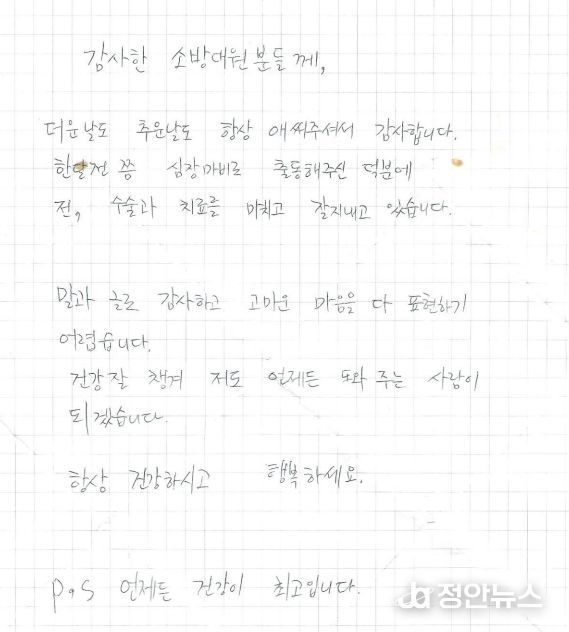 감사한 소방대원분들께,
더운날도 추운날도 항상 애써주셔서 감사합니다.
한달전 쯤 심장마비로 출동해주신 덕분에
전, 수술과 치료를 마치고 잘지내고 있습니다.
말과 글로 감사하고 고마운 마음을 다 표현하기
어렵습니다.
건강 잘 챙겨 저도 언제든 도와 주는 사람이
되겠습니다.
항상 건강하시고 행복하세요.
p.s 언제든 건강이 최고입니다.
ja 정안뉴스